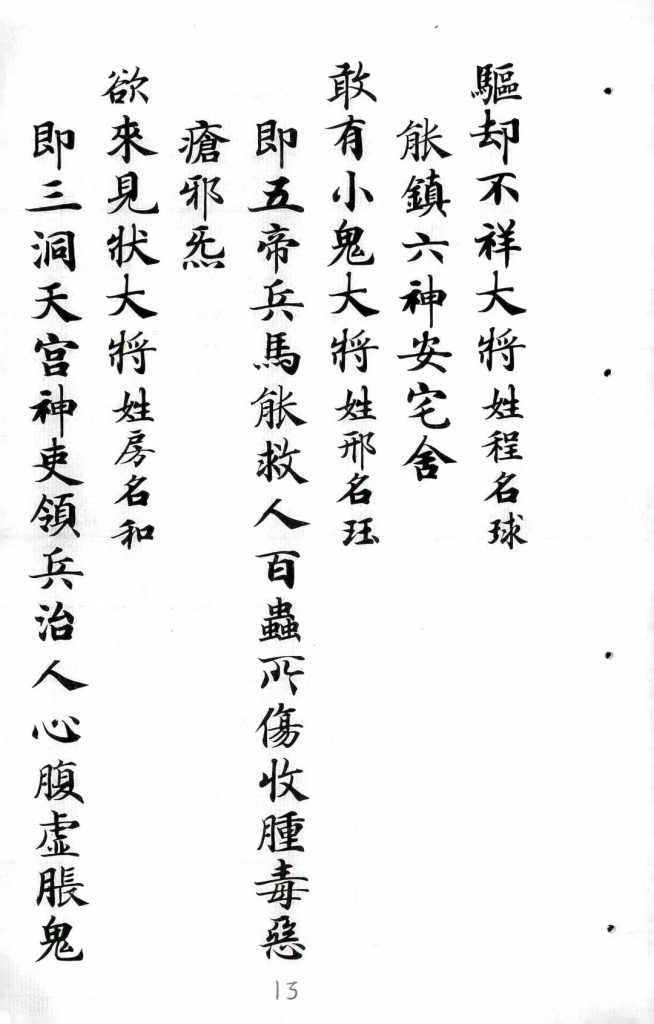 驅却不祥大将姓程名球
能鎮六神安宅舍
敢有小鬼大将姓邢名珏
即五帝兵馬能救人百蟲所傷收腫毒惡
瘡邪炁
欲來見狀大将姓房名和
即三洞天宫神吏領兵治人心腹虚脹鬼
13